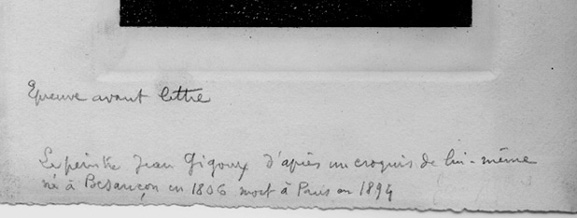 Epreuve avant lettre
Le peintre Jean Gigoux d'après un croquis de lui-même
né à Besançon en 1806 mort à Paris en 1894